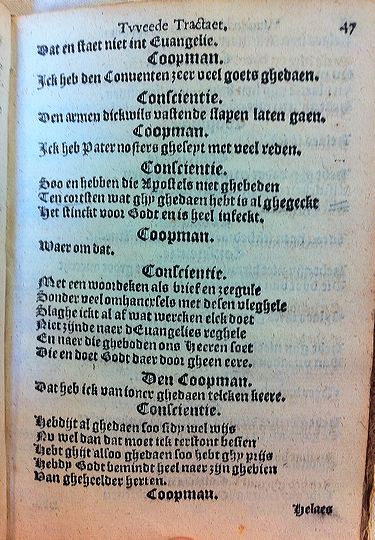 Tvveede Tractaet. 47
Dat en staet niet int Euangelie.
Coopman.
Ick heb den Conuenten zeer veel goets ghedaen.
Conscientie.
Den armen dickwijs vastende slapen laten gaen.
Coopman.
Ick heb Pater nosters ghelept met veel reden.
Conscientie.
Soo en hebben die Apostels niet ghebeden
Ten cortsten wat ghy ghedaen hebt is al ghegeckt
Het stinckt voor Godt en is heel infeckt.
Coopman.
Waer om dat.
Conscientie.
Met een woordeken als brief en zeegule
Sonder veel omhancxsels met desen vleghele
Slaghe ickt al af wat wercken elck doet
Niet zijnde naer dEuangelies reghele
En naer die gheboden ons Heeren soet
Die en doet Godt daer door gheen eere.
Den Coopman.
Dat heb ick van ioncx ghedaen telcken keere.
Conscientie.
Hebdijt al ghedaen soo sidy wel wijs
Nu wel dan dat moet ick terstont beseffen
Hebt ghijt alsoo ghedaen soo hebt ghy prijs
Hebdy Godt bemindt heel naer zijn ghebien
Van gheheelder herten.
Coopman.
Helaes